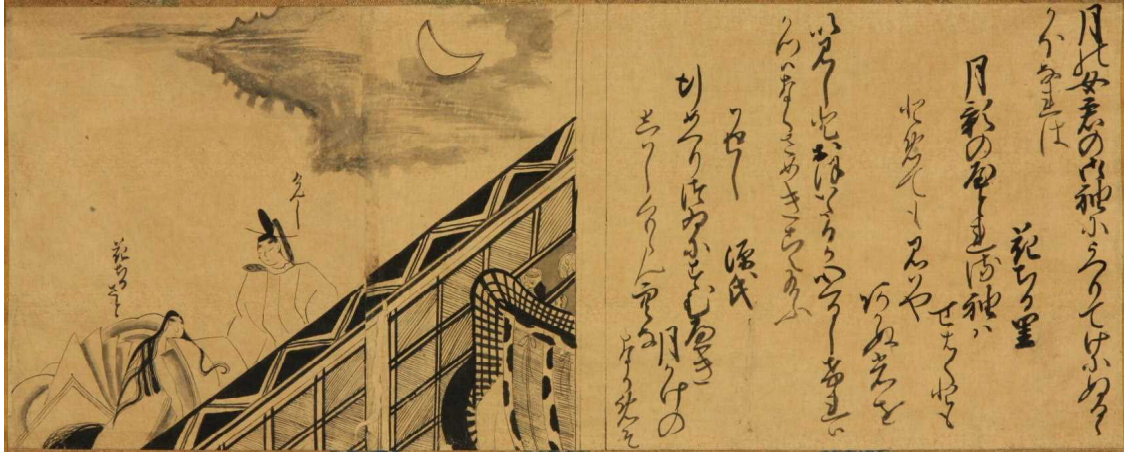 月の女君の御袖にうつりてけにぬるゝ
かほなれは
花ちる里
月影のやとれる袖ハ
せはくとも
とめても見はや
あかぬ光を
いみしとおほいたるか心くるしけれハ
かつハなくさめきこえ給ふ
かへし 源氏
行めくりつゐにすむへき
月かけの
しはしくもらん空な
なかめそ
けんし
花ちる
さと